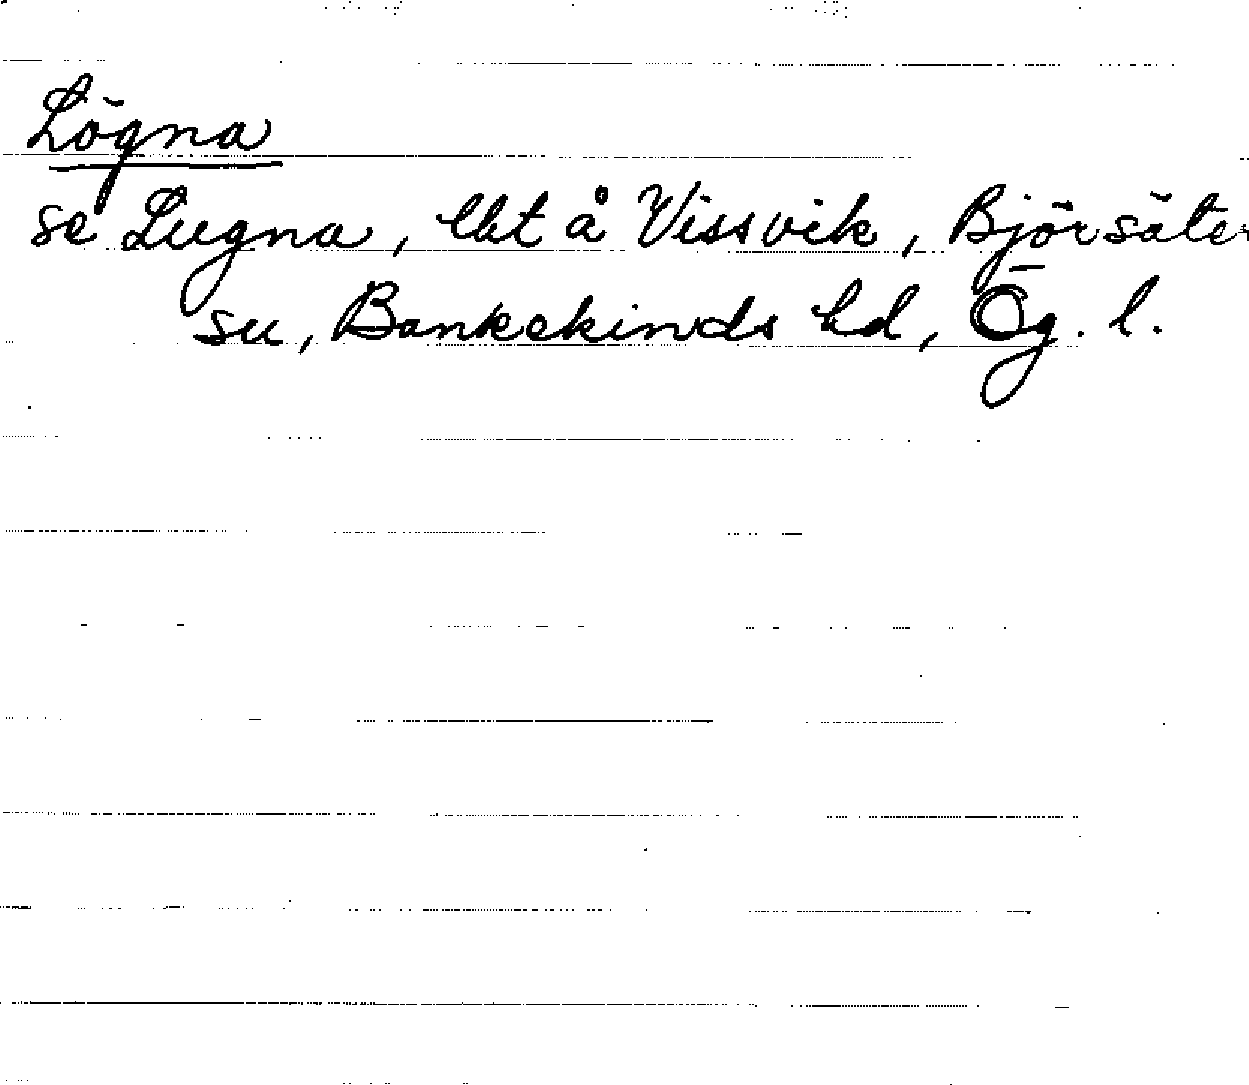 Lögna
se Lugna, lht å Vissvik, Björsäter
sn, Bankekinds hd, Ög. l.